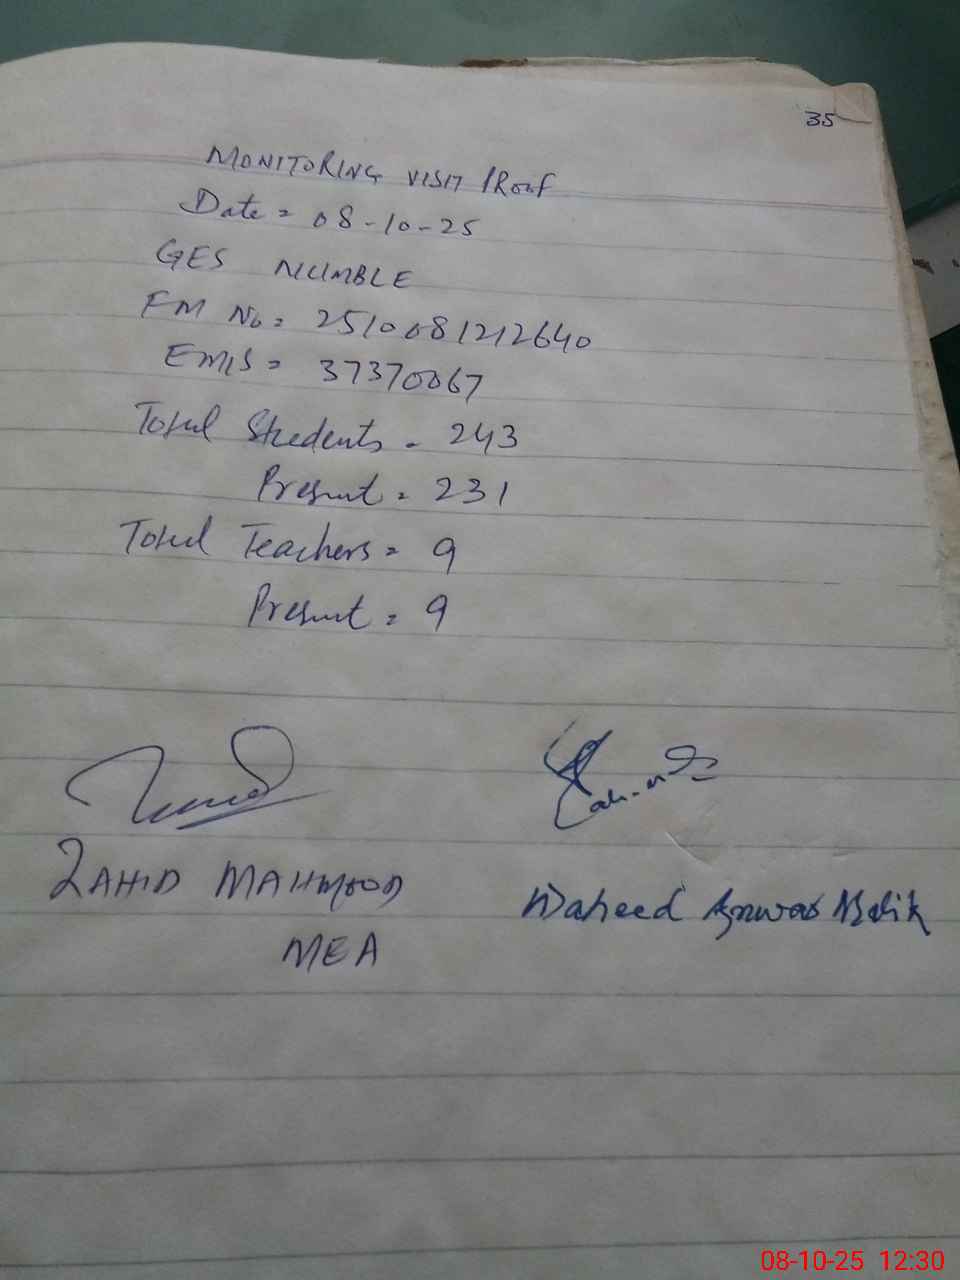 35
MONITORING VISIT PROOF
Date = 08-10-25
GES NUMBLE
FM No. = 2510081212640
EMIS = 37370067
Total Students = 243
Present = 231
Total Teachers = 9
Present = 9
ZAHID MAHMOOD
Waheed Anwar Malik
MEA
08-10-25 12:30